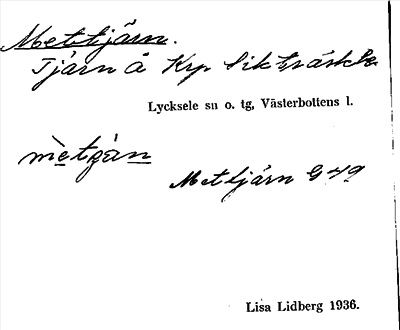 Mettjärn.
Tjärn å Krp Sikträsk
Lycksele sn o. tg, Västerbottens l.
mètʒàn
Mettjärn G49
Lisa Lidberg 1936.